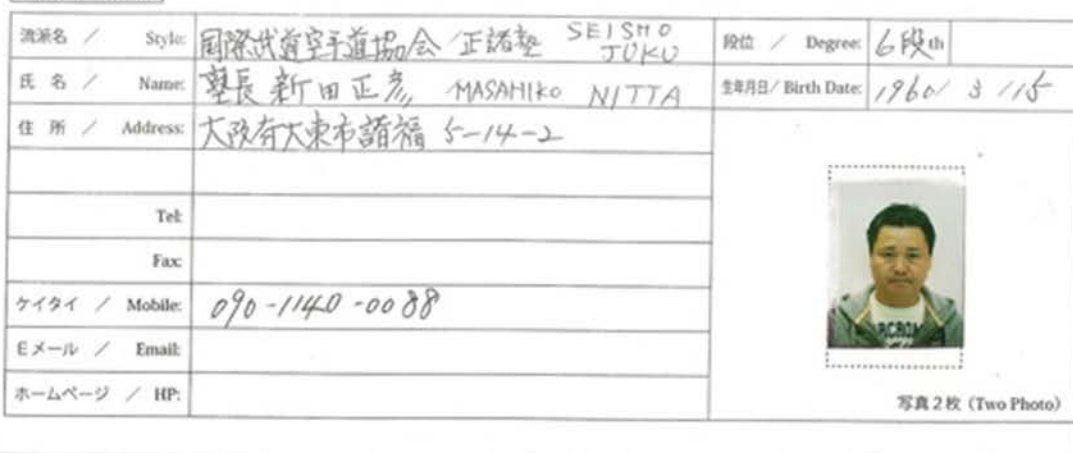 流派名 / Style: 国際武道空手道協会 / 正諾塾 SEISHO JUKU
段位 / Degree: 6段th
氏名 / Name: 塾長 新田正彦 MASAHIKO NITTA
生年月日 / Birth Date: 1960 / 3 / 15
住所 / Address: 大阪府大東市諸福 5-14-2
Tel:
Fax:
ケイタイ / Mobile: 090-1140-0088
Eメール / Email:
ホームページ / HP:
写真2枚 (Two Photo)